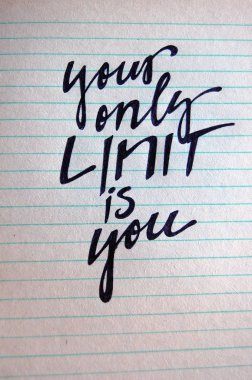 your
only
LIMIT
is
you